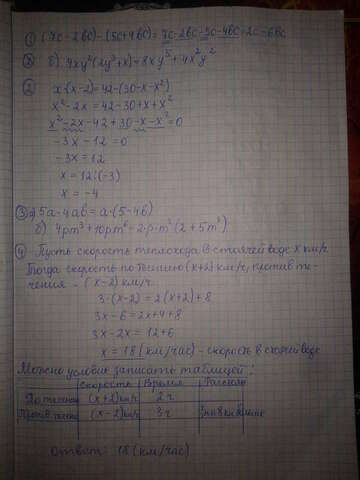 ① (7c-2bc)-(5c+4bc)=7c-2bc-5c-4bc=2c-6bc
б) 4xy²(2y³+x)=8xy⁵+4x²y²
② x·(x-2)=42-(30-x-x²)
x²-2x=42-30+x+x²
x²-2x-42+30-x-x²=0
-3x-12=0
-3x=12
x=12:(-3)
x=-4
③ а) 5a-4ab=a·(5-4b)
б) 4pm³+10pm⁶=2·p·m³(2+5m³)
④ Пусть скорость теплохода в стоячей воде x км/ч.
Тогда скорость по течению (x+2) км/ч, против те-
чения - (x-2) км/ч.
3·(x-2)=2(x+2)+8
3x-6=2x+4+8
3x-2x=12+6
x=18 (км/час) - скорость в стоячей воде
Можно условия записать таблицей:
Скорость Время
По течению (x+2) км/ч 2ч
Против течения (x-2) км/ч 3ч на 8 км
Ответ: 18 (км/час)